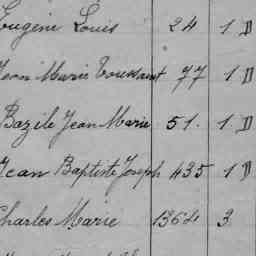 Eugène Louis 24 1 D
Jean Marie Toussaint 77 1 D
Bazile Jean Marie 51. 1 D
Jean Baptiste Joseph 435 1 D
Charles Marie 1364 3